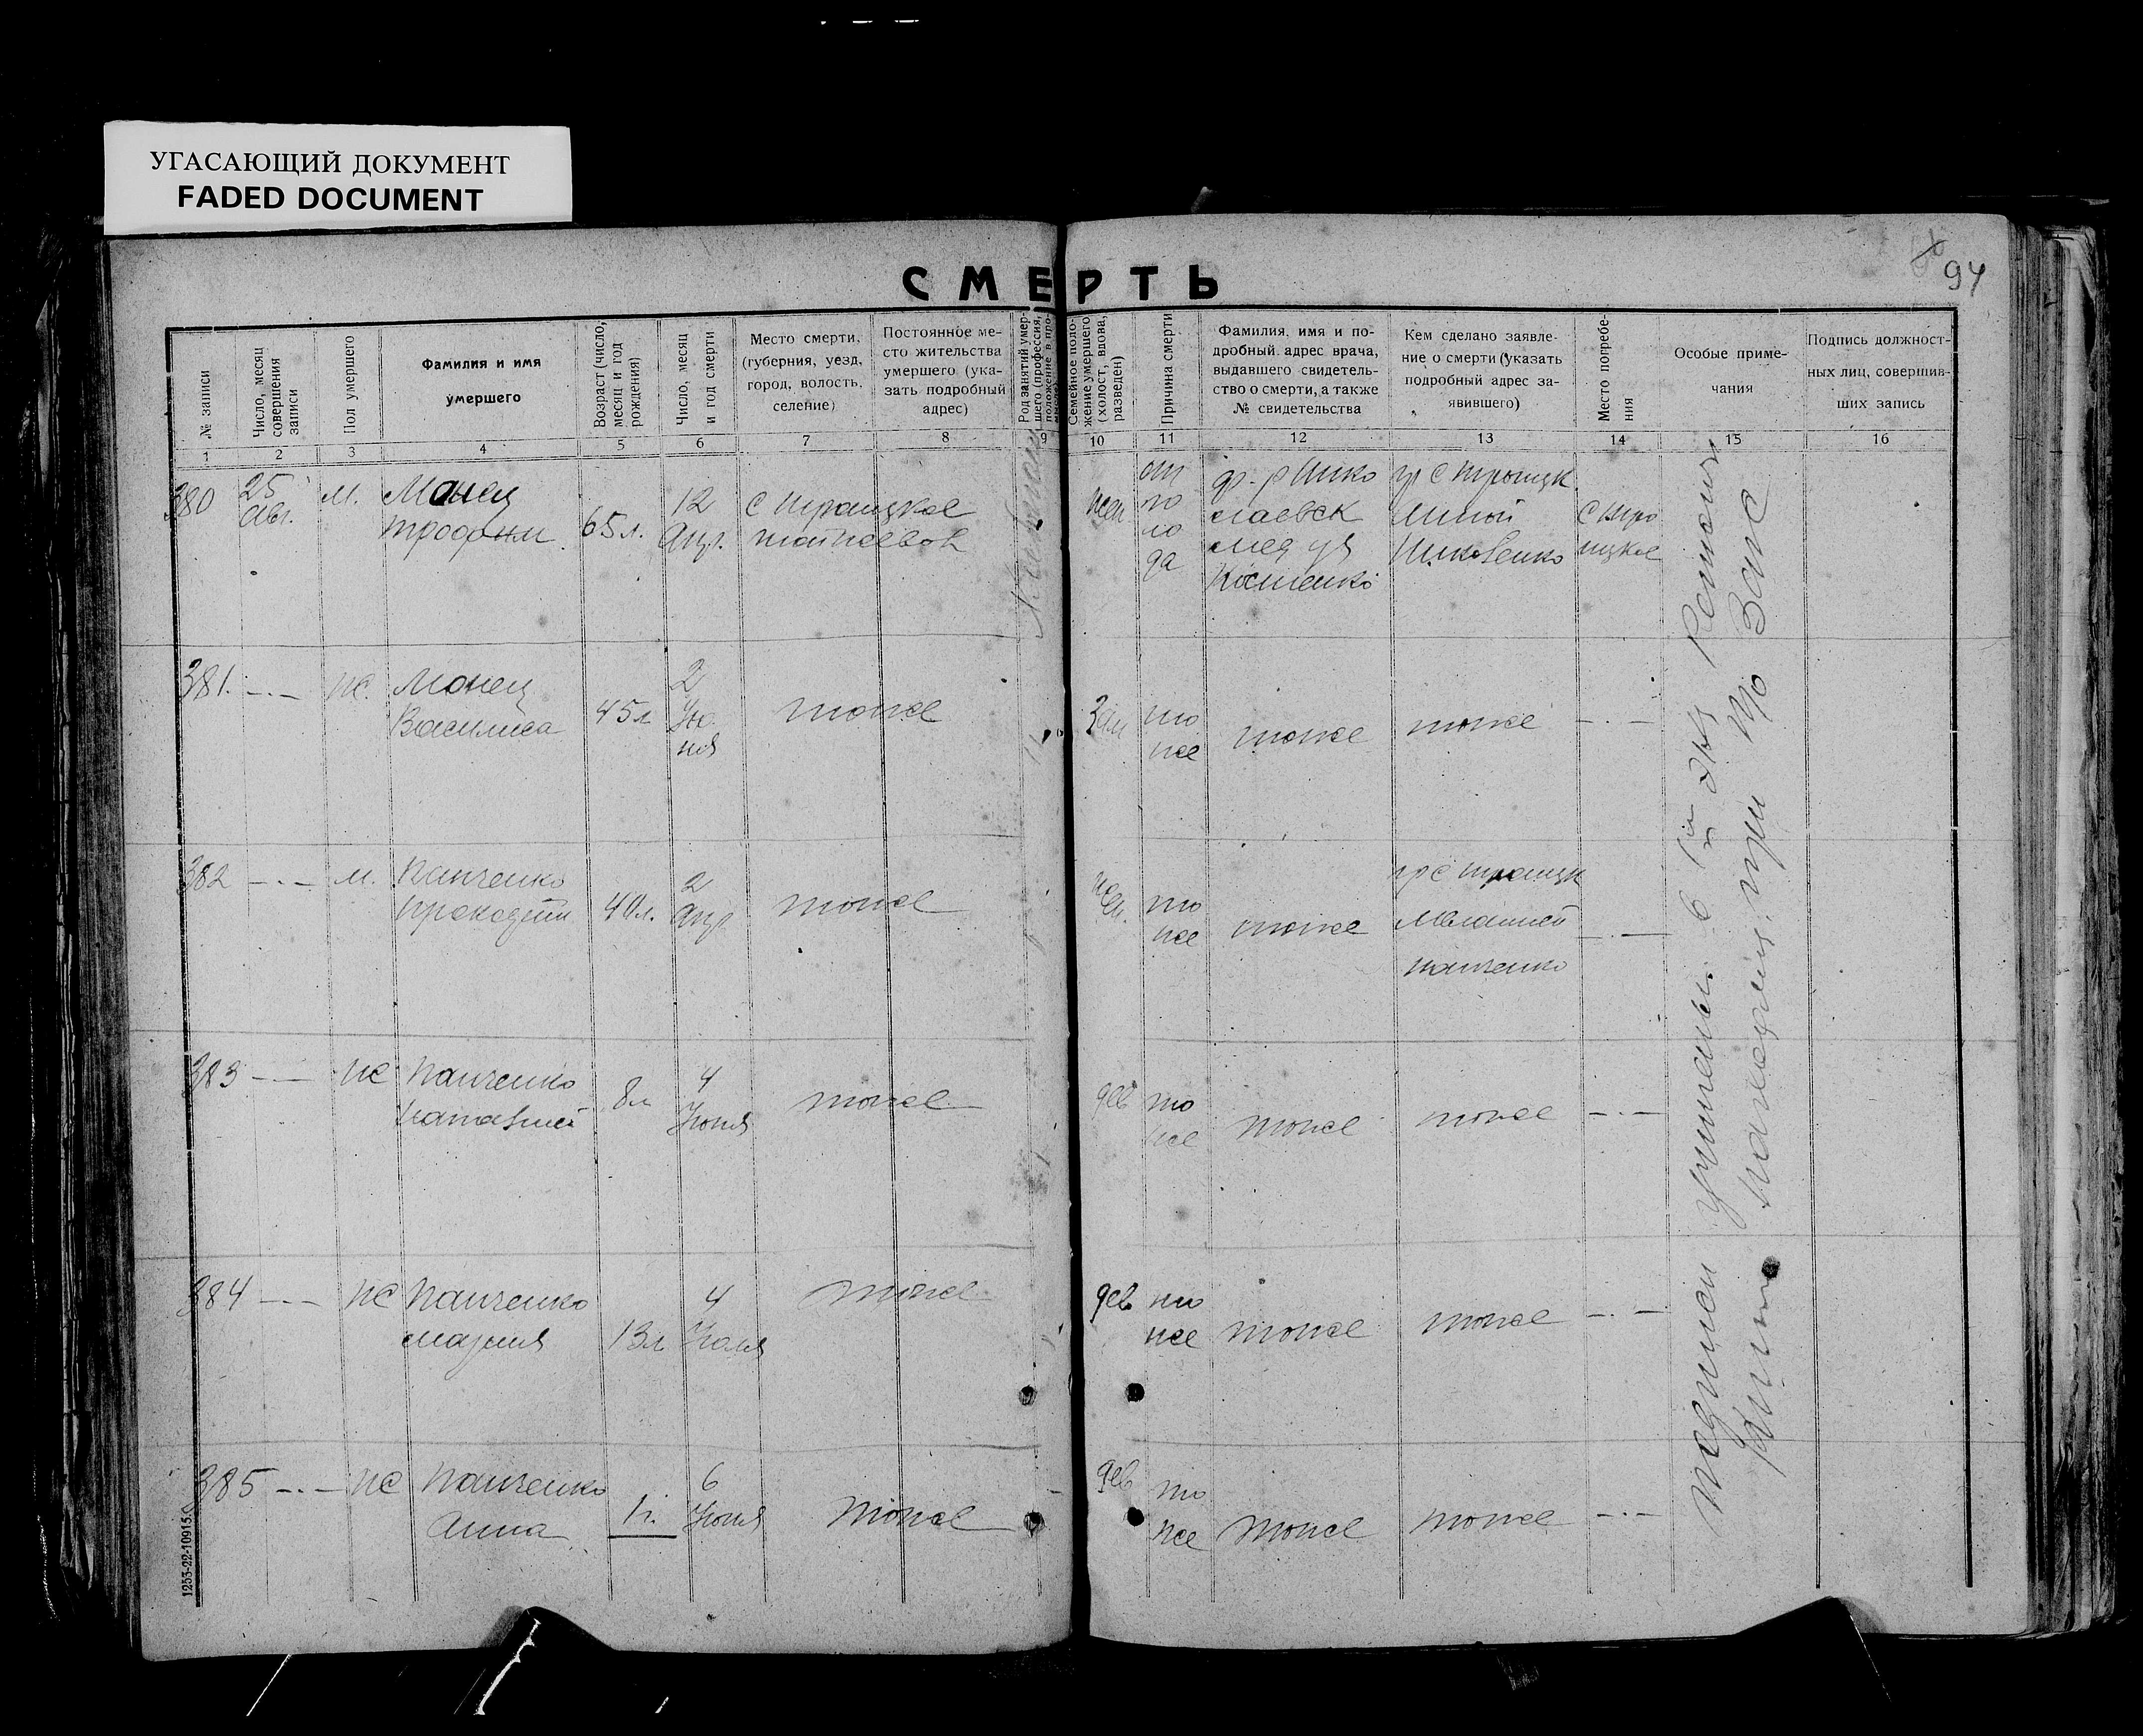 УГАСАЮЩИЙ ДОКУМЕНТ
FADED DOCUMENT
94
СМЕРТЬ
№ записи
Число, месяц совершения записи
Пол умершего
Фамилия и имя
умершего
Возраст (число, месяц и год рождения)
Число, месяц и год смерти
Место смерти,
(губерния, уезд,
город, волость,
селение)
Постоянное ме-
сто жительства
умершего (ука-
зать подробный
адрес)
Род занятий умер-
шего (профессия,
положение в про-
Семейное поло-
жение умершего
(холост, вдова,
разведен)
Причина смерти
Фамилия, имя и по-
дробный адрес врача,
выдавшего свидетель-
ство о смерти, а также
№ свидетельства
Кем сделано заявле-
ние о смерти (указать
подробный адрес за-
явившего)
Место погребе-
ния
Особые приме-
чания
Подпись должност-
ных лиц, совершив-
ших запись
1 2 3 4 5 6 7 8 9 10 11 12 13 14 15 16
380 25 м. Монец 12 с Троицкое жен от гр. с Троицк
авг. Трофим 65 л. Апр. по с Тро
ло ицкое
да Костенко
381. -.- ж. Монец 2 Зам то
Василиса 45 л Ию тоже же тоже тоже -.-
ня
382 -.- м. Панченко 2 жен. то гр с Троицк
Прокофий 40 л. Апр тоже же тоже Меланией -.-
Панченко
383 -.- ж Панченко 4 дев то
8 л Июня тоже же тоже тоже -.-
384 -.- ж Панченко 4 дев то
Мария 13 л Июня тоже же тоже тоже -.-
385 -.- ж Панченко 6 дев то
Анна 1 г. Июня тоже же тоже тоже -.-
1253-22-10915.